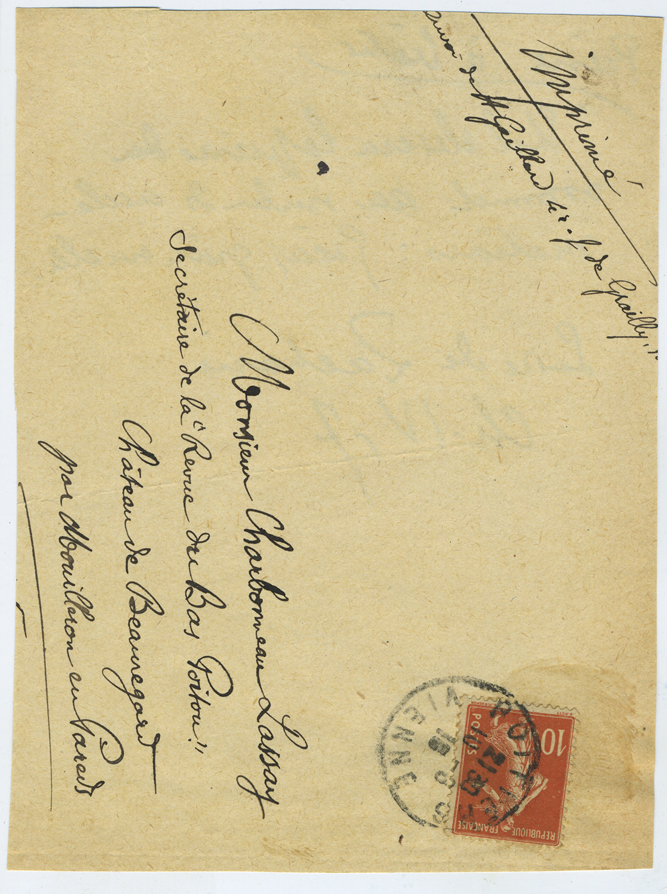 Imprimé
envoi de H. Gaillard 4 r. J. de Grailly,
Monsieur Charbonneau Lassay
Secrétaire de la "Revue du Bas Poitou"
Château de Beauregard
par Mouilleron en Pareds
POITIERS
VIENNE
10
POSTES
REPUBLIQUE FRANÇAISE